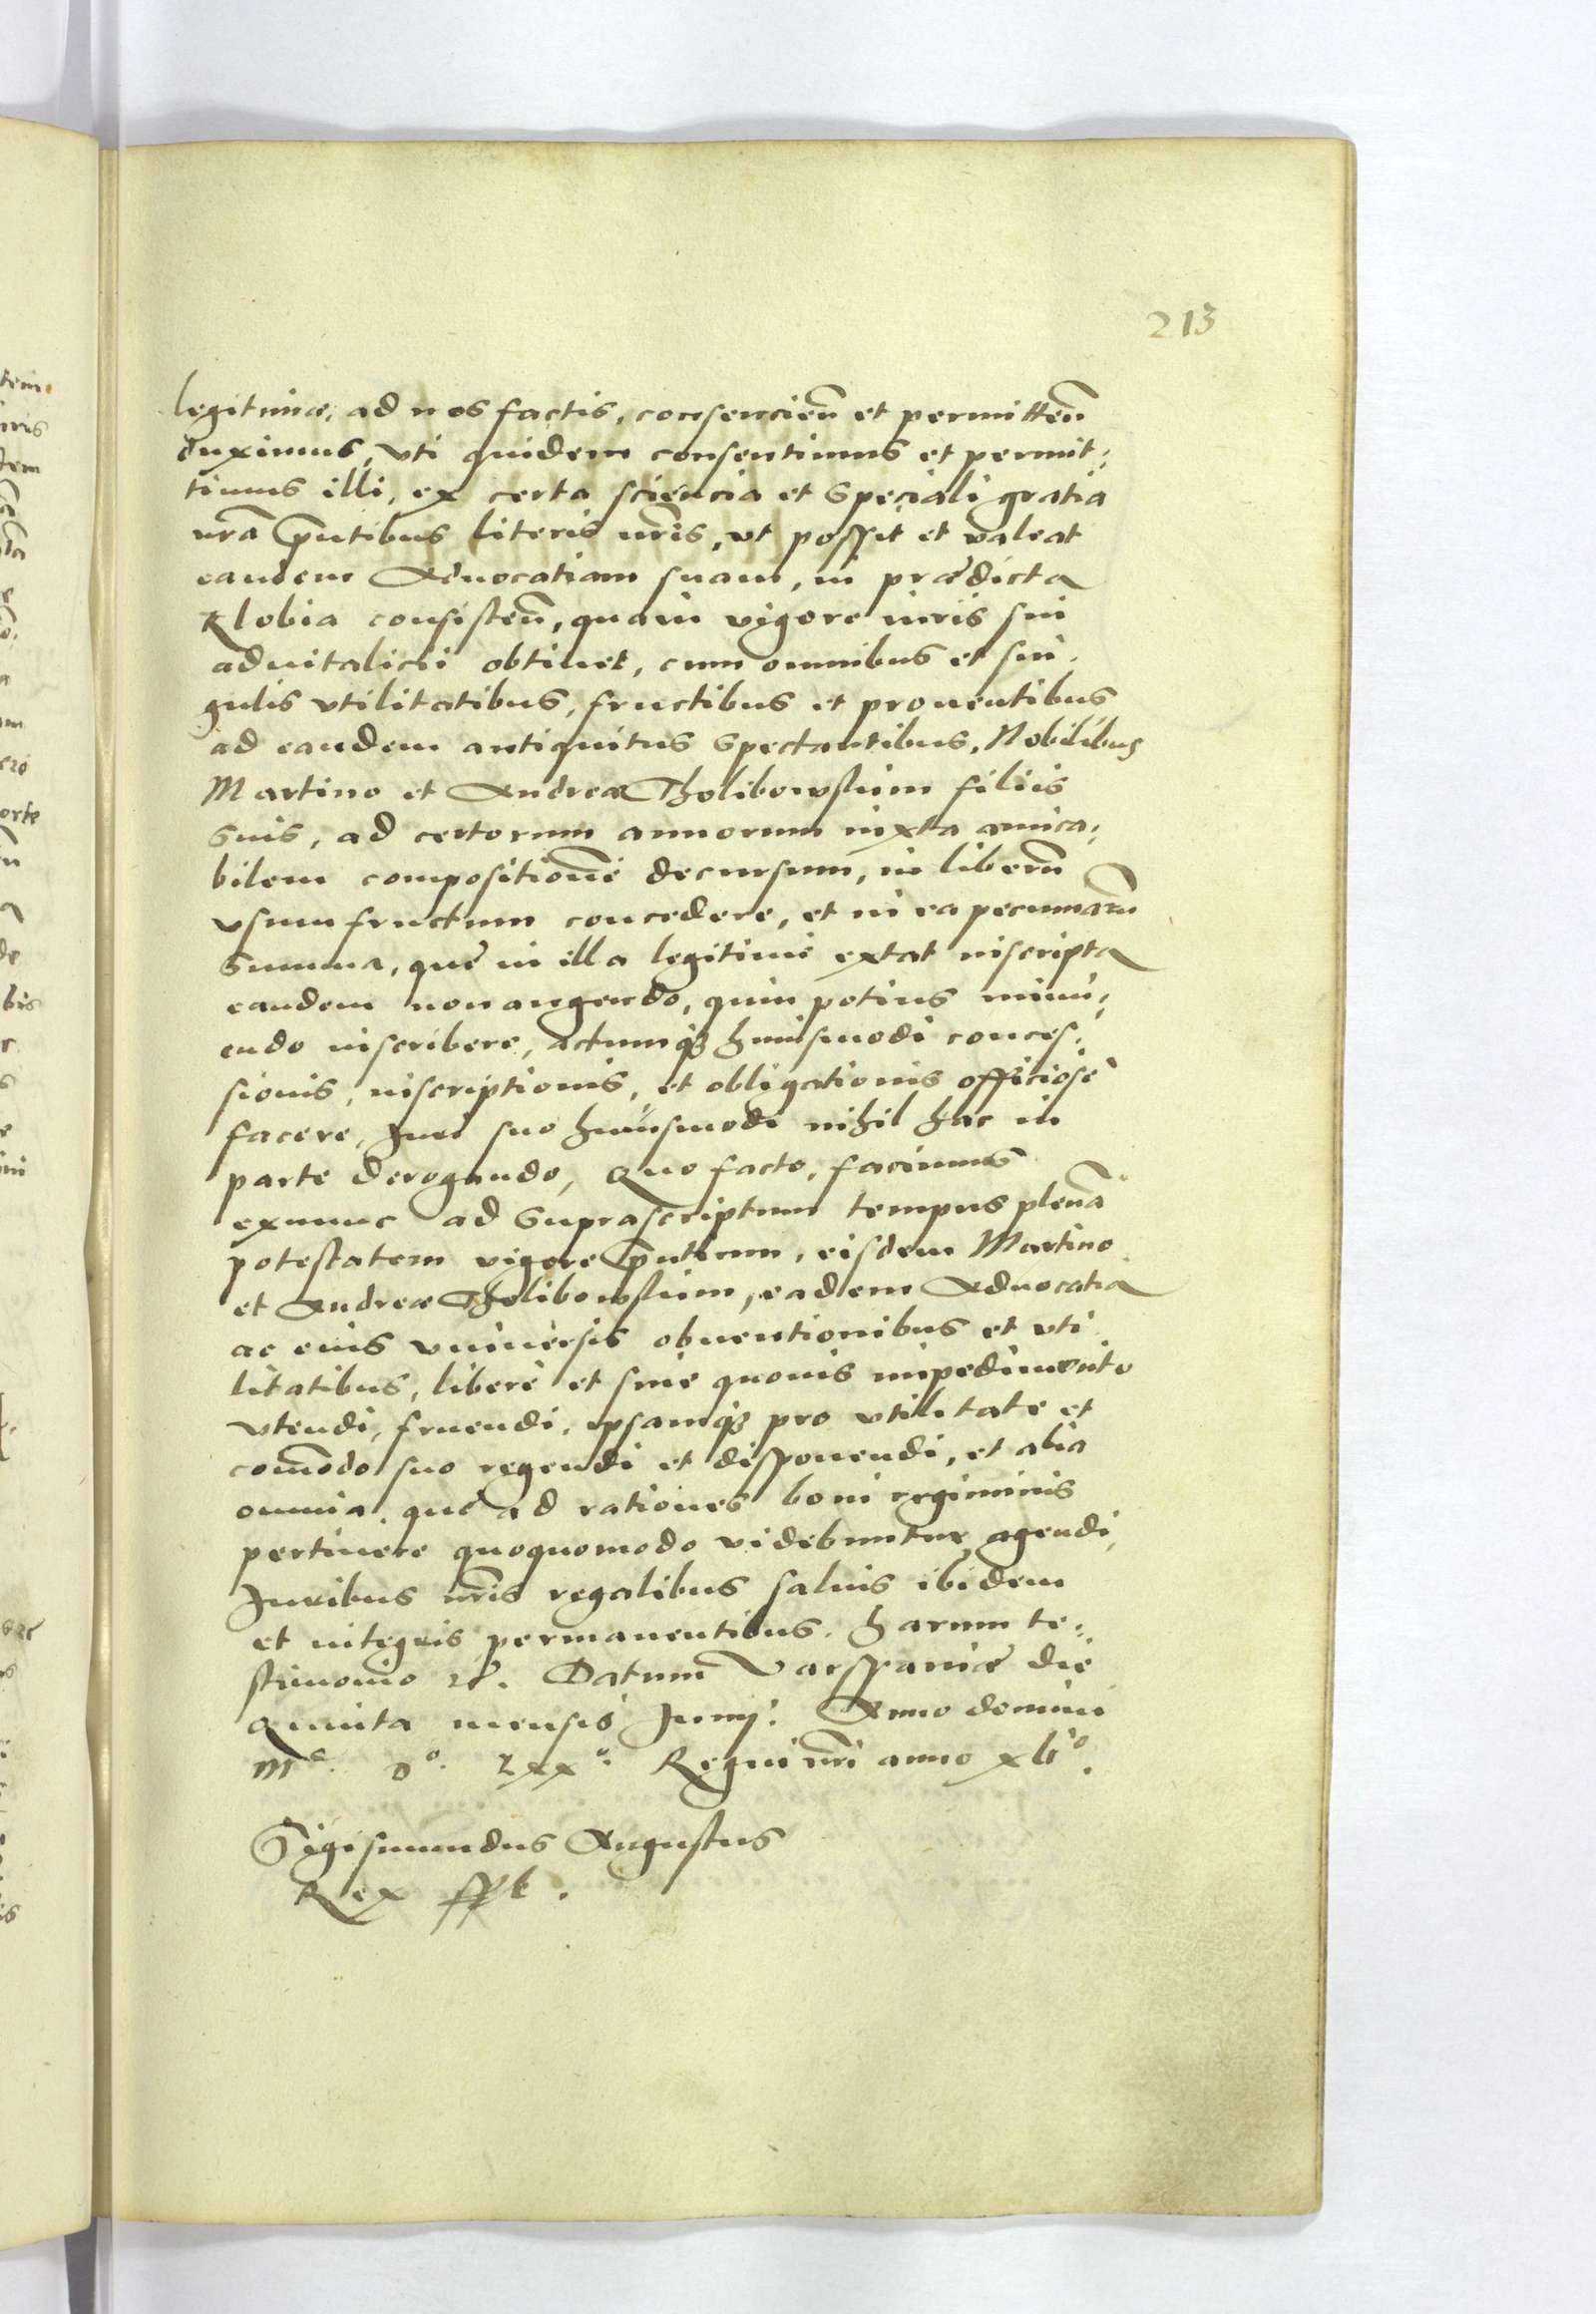 213
legitime, ad nos factis, consencien̄ et permitten̄
duximus, vti quidem consentimus et permit:
timus illi, ex certa sciencia et speciali gratia
nr̄a p̄ntibus literis nr̄is, vt possit et valeat
eandem Aduocatiam suam, in prædicta
Klobia consisten̄, quam vigore iuris sui
aduitalicii obtinet, cum omnibus et sin.
gulis vtilitatibus, fructibus et prouentibus
ad eandem antiquitus spectantibus, Nobilibus
Martino et Andreæ Tholibowsſkim filiis
suis, ad certorum annorum iuxta amica:
bilem compositionē decursum, in liberū
vsumfructum concedere, et in ea pecuniarū
summa, quę in illa legitime extat inscripta
eandem non augendo, quin potius minu:
endo inscribere, actumqʒ huiusmodi conces:
sionis, inscriptionis, et obligationis officiose
facere, Juri suo huiusmodi nihil hac in
parte derogando, Quo facto, facimus
exnunc ad suprascriptum tempus plenā
potestatem vigore p̄ntium, eisdem Martino
et Andreæ Tholibowskim, eadem Aduocatia
ac eius vniuersis obuentionibus et vti
litatibus, libere et sine quouis impedimento
vtendi, fruendi, ipsamqʒ pro vtilitate et
com̄odo suo regendi et disponendi, et alia
omnia, quę ad rationes boni regiminis
pertinere quoquomodo videbuntur agendi,
Juribus nr̄is regalibus saluis ibidem
et integris permanentibus. Harum te:
stimonio etc̄. Datum Varssauiæ die
Quinta mensis Junij. Anno domini
Mᵒ. Dᵒ. Lxxᵒ. Regni nr̄i anno xliᵒ.
Sigismundus Augustus
Rex sspt.